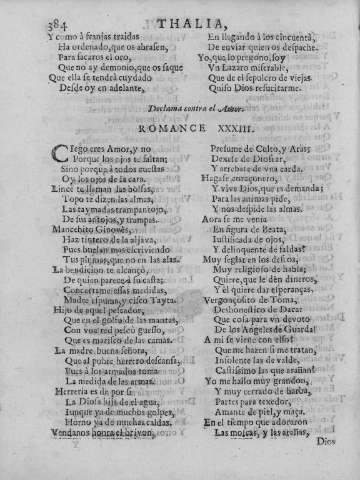 384 THALIA,
Y como à franjas traidas
Ha ordenado, que os abrasen,
Para sacaros el oro,
Que no ay demonio, que os saque
Que ella se tendrá cuydado
Desde oy en adelante,
En llegando à los cincuenta,
De enviar quien os despache.
Yo, que lo pregono, soy
Vn Lazaro miserable,
Que de el sepulcro de viejas
Quiso Dios resucitarme.
Declama contra el Amor.
ROMANCE XXXIII.
Ciego eres Amor, y no
Porque los ojos te faltan;
Sino porque à todos cuestas
Oy los ojos de la cara.
Lince te llaman las bolsas,
Topo te dizen las almas,
Las taymadas trampantojo,
De sus antojos, y trampas.
Mancebito Ginovès,
Haz tintero de la aljava,
Pues buelan mas escriviendo
Tus plumas, que no en las alas.
La bendicion te alcançò,
De quien parece à su casta;
Concertarme essas medidas,
Madre espuma, y cisco Tayta.
Hijo de aquel pescador,
Que en el golfo de las mantas,
Con vna red pescò garfio,
Que es marisco de las camas.
La madre, buena señora,
Que al pobre herrero descansa,
Pues à los armados toma
La medida de las armas.
Herreria es de por si
La Diosa hija de el agua,
Iunque ya de muchos golpes,
Horno ya de muchas caldas.
Vendanos honra el brivon,
Presume de Culto, y Aras;
Dexase de Diosear,
Y arrebate de vna carda.
Hagase çoraquinero,
Y viva Dios, que es demanda;
Para las animas pide,
Y nos despide las almas.
Aora se me venia
En figura de Beata,
Iustificada de ojos,
Y delinquente de faldas?
Muy seglar en los deseos,
Muy religioso de habla;
Quiere, que le dèn dineros,
Y èl quiere dar esperanças.
Vergonçosito de Toma,
Deshonestico de Dacar
Que cosa para vn devoto
De los Angeles de Guarda!
A mi se viene con esso?
Que me hazen si me tratan,
Insolente las de valde,
Castissimo las que arañan!
Yo me hallo muy grandon,
Y muy cerrado de barba,
Partes para texedor,
Amante de piel, y maça.
En el tiempo que adoraron
Las moscas, y las arañas,
Dios